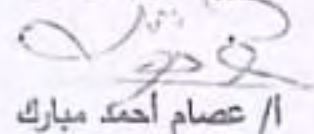 أ/ عصام أحمد مبارك